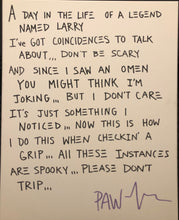 A DAY IN THE LIFE OF A LEGEND
NAMED LARRY
I'VE GOT COINCIDENCES TO TALK
ABOUT,,, DON'T BE SCARY
AND SINCE I SAW AN OMEN
YOU MIGHT THINK I'M
JOKING,,, BUT I DON'T CARE
IT'S JUST SOMETHING I
NOTICED,,, NOW THIS IS HOW
I DO THIS WHEN CHECKIN' A
GRIP,,, ALL THESE INSTANCES
ARE SPOOKY,,, PLEASE DON'T
TRIP,,,